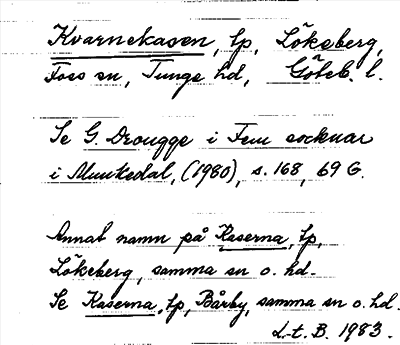 Kvarnekasen, tp, Lökeberg,
Foss sn, Tunge hd, Göteb. l.
Se G. Drougge i Fem socknar
i Munkedal, (1980), s. 168, 69 G.
Annat namn på Kaserna, tp,
Lökeberg, samma sn o. hd.
Se Kaserna, tp, Bärby, samma sn o. hd.
L.t. B. 1983.